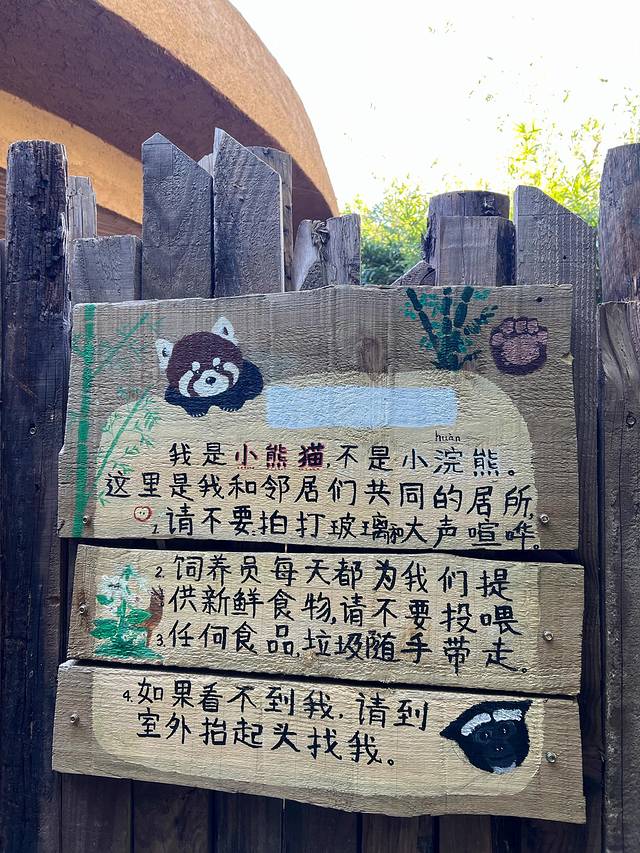 huàn
我是小熊猫,不是小浣熊。
这里是我和邻居们共同的居所,
1.请不要拍打玻璃和大声喧哗。
2.饲养员每天都为我们提
供新鲜食物,请不要投喂
3.任何食品,垃圾随手带走。
4.如果看不到我,请到
室外抬起头找我。